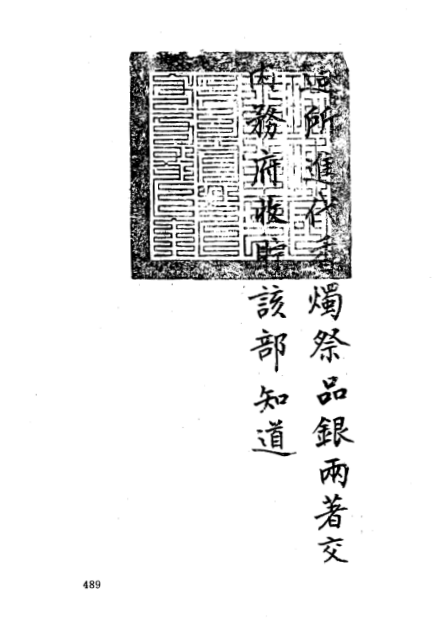 所進代香燭祭品銀兩著交
內務府收貯該部知道
489